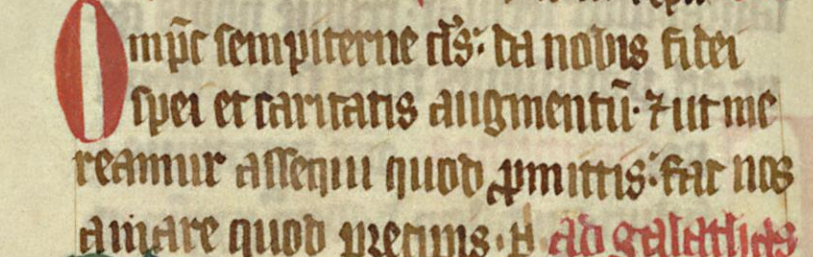 Omp̄c sempiterne d̄s: da nobis fidei
spei et caritatis augmentū· ⁊ ut me
reamur assequi quod ꝓmittis: fac nos
amare quod precipis· p̲ ad galathas